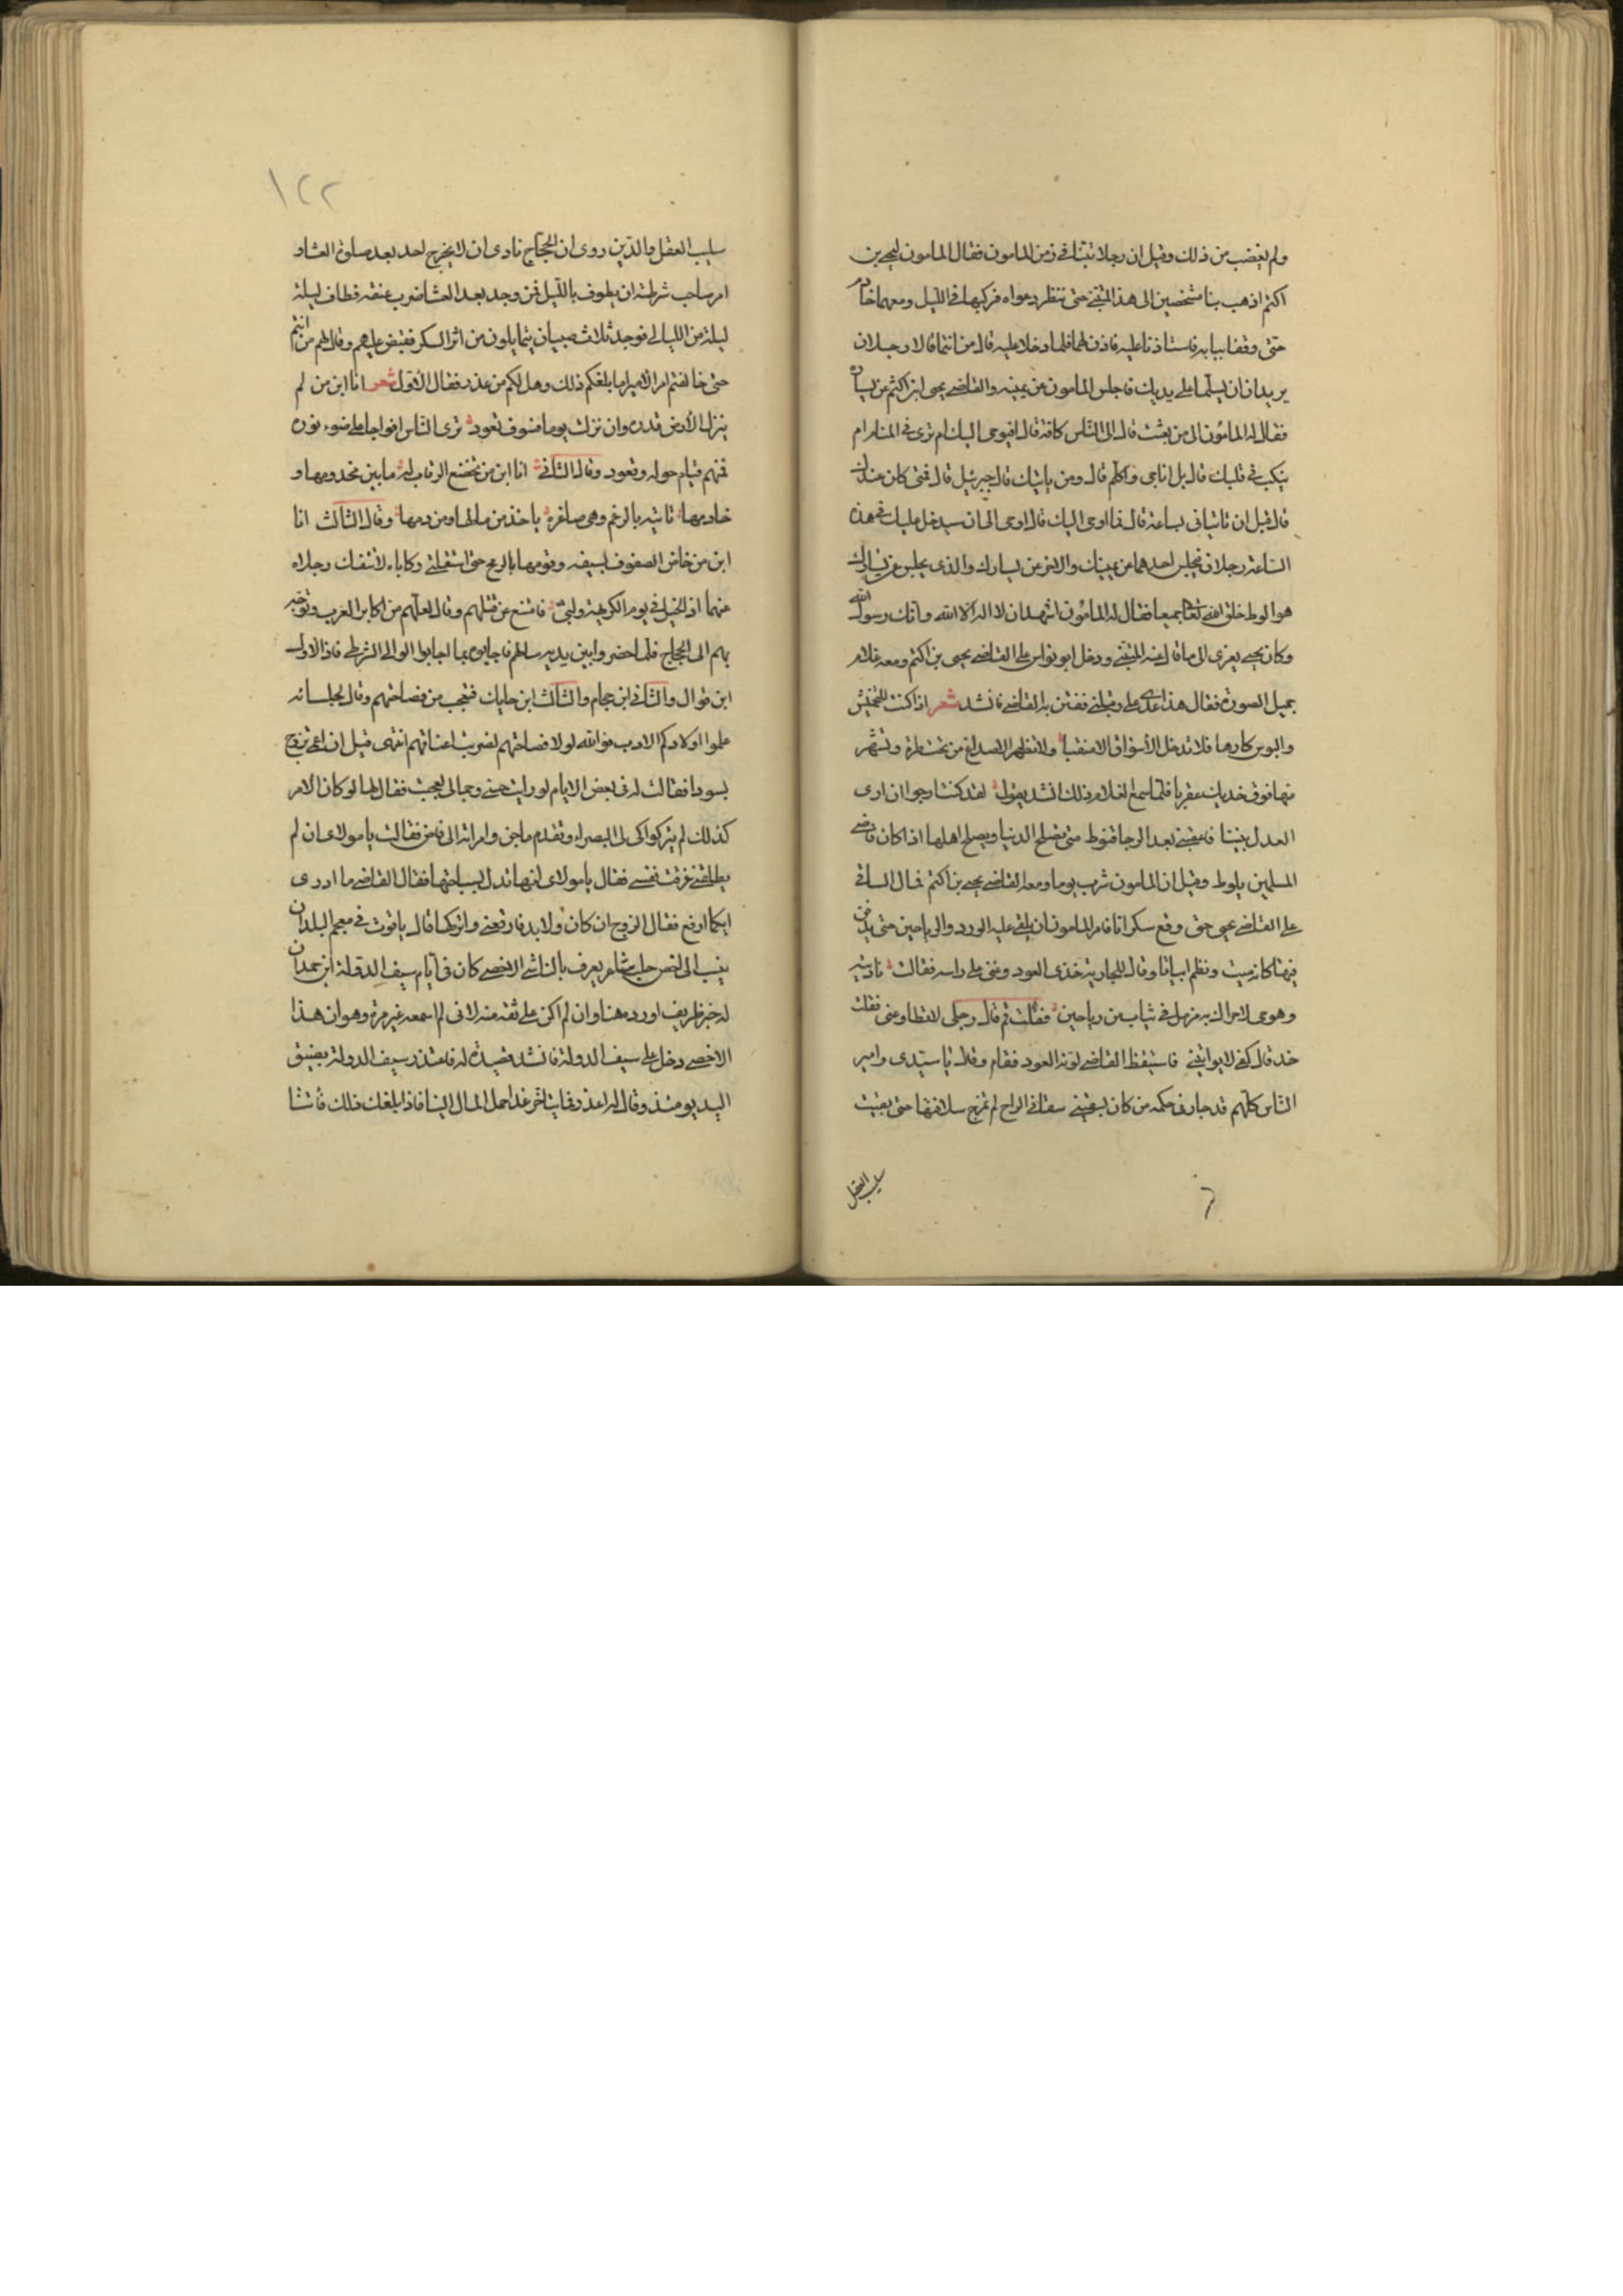 ولم يغضب من ذلك وقيل ان رجلا تنبّأ في زمن المامون فقال المامون ليحيى بن
اكثم اذهب بنا متخفيين الى هذا المتنبي حتى ننظر دعواه فركبها في الليل ومعهما خادم
حتى وقفا ببابه فاستاذنا عليه فاذن لهما فلما دخلا عليه قال من انتما قالا رجلان
يريدان ان يسلما على يديك فاجلس المامون عن يمينه والقاضي يحيى ابن اكثم عن يساره
فقال له المامون الى من بعثت قال الى الناس كافة قال افيوحى اليك ام ترى في المنام ام
ينكت في قلبك قال بل اناجى واكلم قال ومن ياتيك قال جبرئيل قال فمتى كان عندك
قال قبل ان تاتياني بساعة قال فما اوحى اليك قال اوحى الى ان سيدخل عليك في هذه
الساعة رجلان فيجلس احدهما عن يمينك والاخر عن يسارك والذي يجلس عن يسارك
هو الوط خلق الله تعالى جميعا فقال له المامون اشهد ان لا اله الا الله وانك رسول الله
وكان يحيى يعزى الى ما قال عنه المتنبي ودخل ابو نواس على القاضي يحيى بن اكثم ومعه غلام
جميل الصورة فقال هذا عدى على وقبلني ففتن به القاضي فانشد شعر اذا كنت للتخميش
والبوس كارها فلا تدخل الأسواق الا منقبا ولا تظهر الاصداغ من تحت طرة وتشهر
منها فوق خديك عقربا فلما سمع الغلام ذلك انشد يقول لقد كنت ارجوا ان ارى
العدل بيننا فاعقبني بعد الرجا قنوط متى تصلح الدنيا ويصلح اهلها اذا كان قاضي
المسلمين يلوط وقيل ان المامون شرب يوما ومعه القاضي يحيى بن اكثم فمال الساقي
على القاضي يحيى حتى وقع سكرانا فامر المامون ان يلقى عليه الورد والرياحين حتى يدفن
فيها كانه ميت ونظم ابياتا وقال للجارية خذي العود وغني على راسه فقالت ناديته
وهو حي لا حراك به مزمل في ثياب من رياحين فقلت قم قال رجلي لا تطاوعني فقلت
خذ قال كفي لا يواتيني فاستيقظ القاضي لرنة العود فقام وقال يا سيدي وامير
الناس كلهم قد جار في حكمه من كان يسقيني سقاني الراح لم تمزج سلافتها حتى بقيت
سليب العقل
١٢٢
سليب العقل والدين روى ان الحجاج نادى ان لا يخرج احد بعد صلوة العشا و
امر صاحب شرطته ان يطوف بالليل فمن وجد بعد العشا ضرب عنقه فطاف ليلة
ليلة من الليالي فوجد ثلاث صبيان يتمايلون من اثر السكر فقبض عليهم وقال لهم من انتم
حتى خالفتم امر الامير اما بلغكم ذلك وهل لكم من عذر فقال الاول شعر انا ابن من لم
ينزل الأرض قدره وان نزلت يوما فسوف تعود ترى الناس افواجا على ضوء نوره
فمنهم قيام حوله وقعود وقال الثاني انا ابن من تخضع الرقاب له ما بين مخدومها و
خادمها تاتيه بالرغم وهي صاغرة ياخذ من مالها ومن دمها وقال الثالث انا
ابن من خاض الصفوف بسيفه وقومها بالرمح حتى استقلت ركاباه لا تنفك رجلاه
عنهما اذ الخيل في يوم الكريهة ولت فامتنع عن قتلهم وقال لعلهم من اكابر العرب وتوجه
بهم الى الحجاج فلما حضروا بين يديه سالهم فاجابوه بما اجابوا الوالي الشرطي فاذا الاول
ابن فوال والثاني ابن حجام والثالث ابن حايك فتعجب من فصاحتهم وقال لجلسائه
علموا اولادكم الادب فوالله لولا فصاحتهم لضربت اعناقهم انتهى قيل ان اعمى تزوج
بسودا فقالت له في بعض الايام لو رايت حسني وجمالي لعجبت فقال لها لو كان الامر
كذلك لم يتركوك لي البصراء وتقدم ماجن وامراته الى قاض فقالت يا مولاي ان لم
يطلقني غرقت نفسي فقال يا مولاي انها تدل بسباحتها فقال القاضي ما ادري
ايكما ارفع فقال الزوج ان كان ولا بد فارفعني واتركها قال ياقوت في معجم البلدان
ينسب الى احص حلب شاعر يعرف بالناشي الاحصي كان في ايام سيف الدولة ابن حمدان
له خبر ظريف اورده هنا وان لم اكن على ثقة منه لاني لم اسمعه غير مرة وهو ان هذا
الاحصي دخل على سيف الدولة فانشد قصيدة له فاعتذر سيف الدولة بضيق
اليد يومئذ وقال له اعذر فما يتاخر غدا حمل المال الينا فاذا بلغك ذلك فأتنا